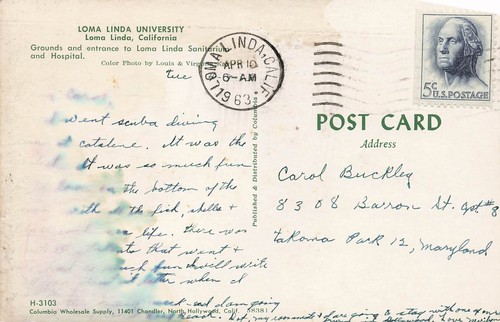 LOMA LINDA UNIVERSITY
Loma Linda, California
Grounds and entrance to Loma Linda Sanitarium
and Hospital.
Color Photo by Louis & Virginia
LOMA LINDA, CALIF.
APR 10
6-AM
1963
5¢
U.S. POSTAGE
tue
went scuba diving
catalene. It was the
It was so much fun
on the bottom of the
with the fish, shells &
life. there was
that went &
fun will write
later when I
going
POST CARD
Address
Carol Buckley
8308 Barron St. apt #8
takoma Park 12, Maryland
Published & Distributed by Columbia
H-3103
Columbia Wholesale Supply, 11401 Chandler, North Hollywood, Calif. 58381
my roommate & I are going to stay with one of